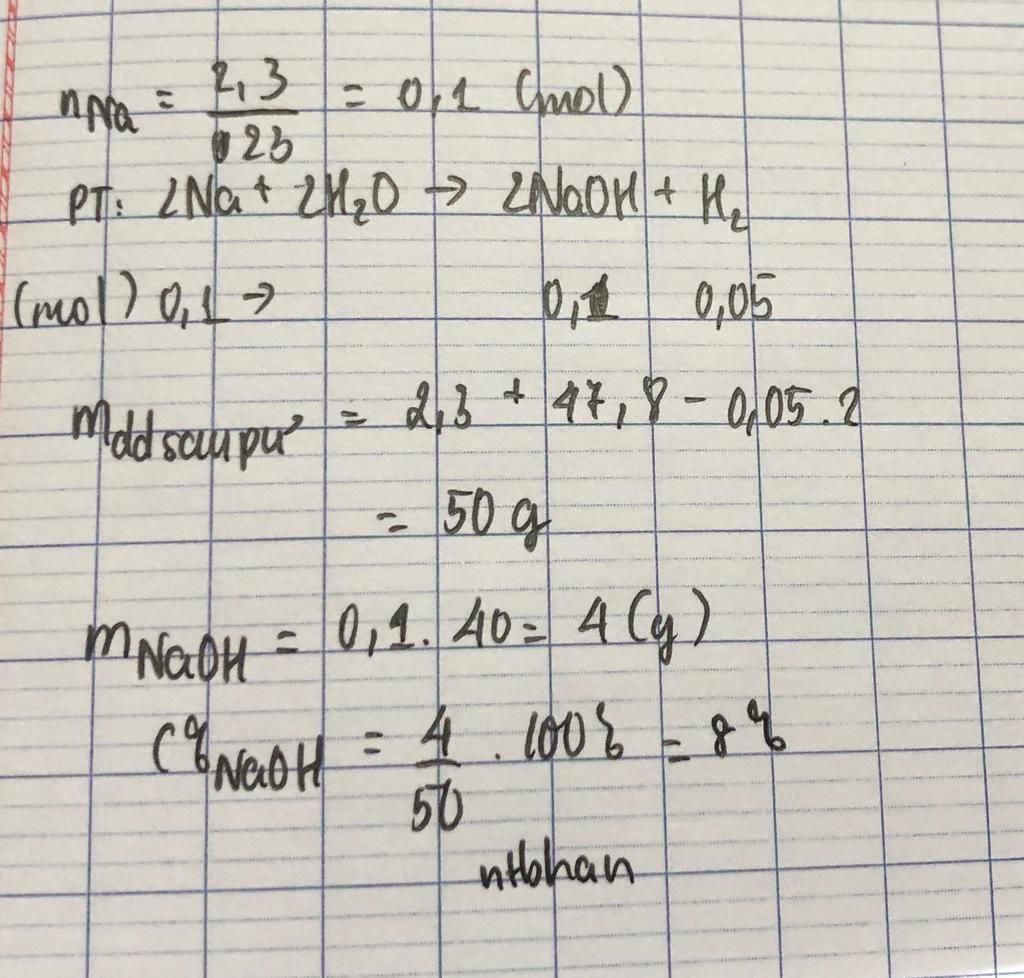 nNa = 2,3 / 23 = 0,1 (mol)
PT: 2Na + 2H₂O → 2NaOH + H₂
(mol) 0,1 → 0,1 0,05
mdd sau pư = 2,3 + 47,8 - 0,05 . 2
= 50 g
mNaOH = 0,1 . 40 = 4 (g)
C%NaOH = 4 / 50 . 100% = 8%